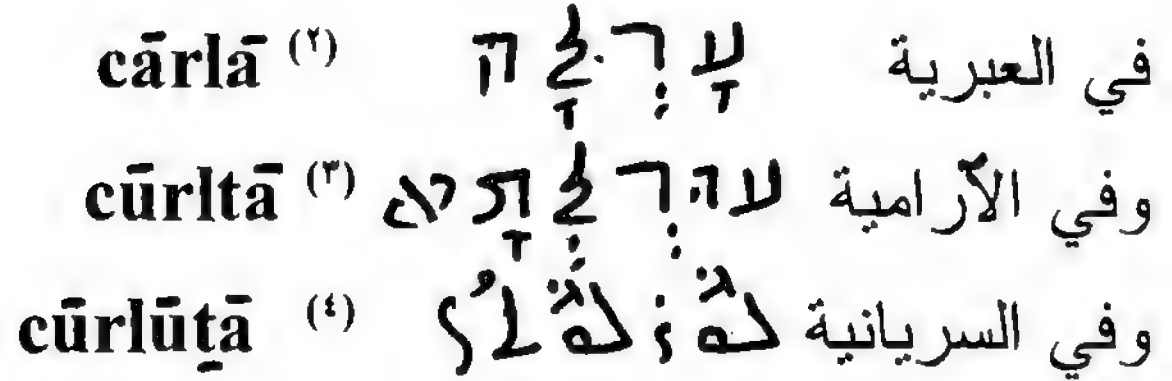 في العبرية עָרְלָה (٢) cārlā
وفي الآرامية עוּרְלְתָא (٣) cūrltā
وفي السريانية ܥܽܘܪܠܽܘܬܳܐ (٤) cūrlūṯā